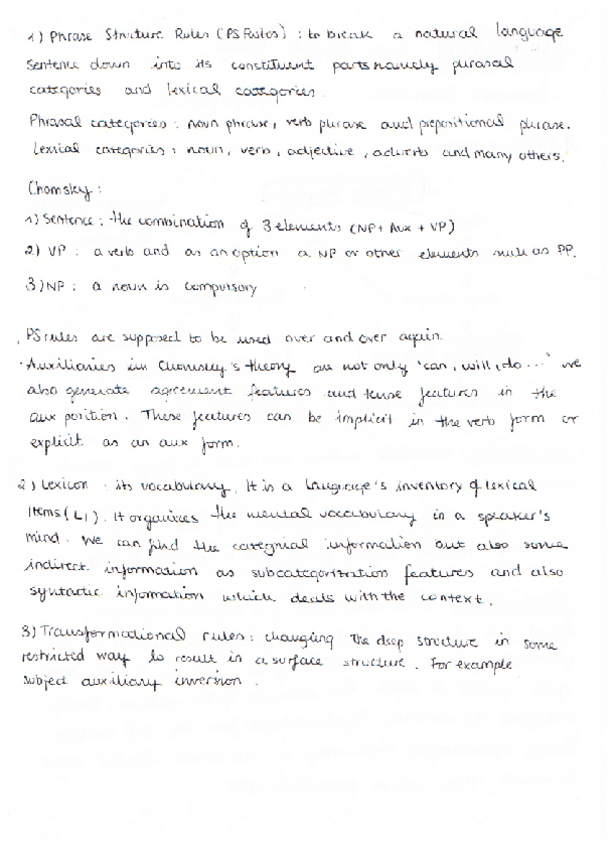 1) Phrase Structure Rules (PS Rules) : to break a natural language
sentence down into its constituent parts namely phrasal
categories and lexical categories.
Phrasal categories : noun phrase, verb phrase and prepositional phrase.
Lexical categories : noun, verb, adjective, adverb and many others.
Chomsky :
1) Sentence : the combination of 3 elements (NP + Aux + VP)
2) VP : a verb and as an option a NP or other elements such as PP.
3) NP : a noun is compulsory
. PS rules are supposed to be used over and over again.
· Auxiliaries in Chomsky's theory are not only 'can, will, do...' we
also generate agreement features and tense features in the
aux position. These features can be implicit in the verb form or
explicit as an aux form.
2) Lexicon : its vocabulary. It is a language's inventory of lexical
items (LI). It organizes the mental vocabulary in a speaker's
mind. We can find the categorial information but also some
indirect information as subcategorization features and also
syntactic information which deals with the context.
3) Transformational rules : changing the deep structure in some
restricted way to result in a surface structure. For example
subject auxiliary inversion.